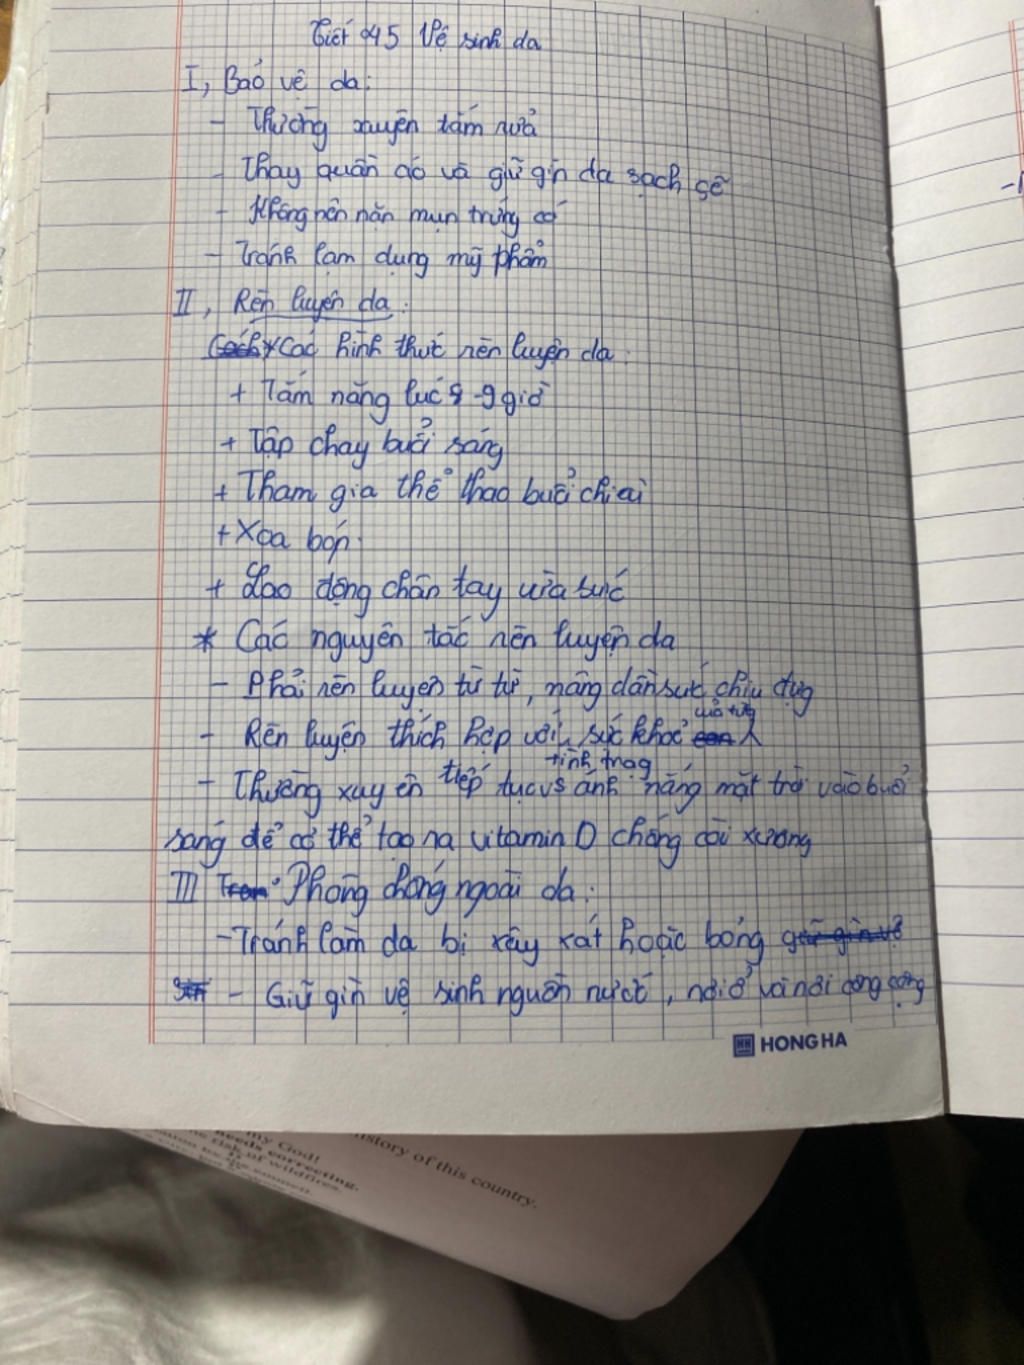 Tiết 45 Vệ sinh da
I, Bảo vệ da:
- Thường xuyên tắm rửa
- Thay quần áo và giữ gìn da sạch sẽ
- Không nên nặn mụn trứng cá
- Tránh lạm dụng mỹ phẩm
II, Rèn luyện da:
Cách * Các hình thức rèn luyện da:
+ Tắm nắng lúc 8-9 giờ
+ Tập chạy buổi sáng
+ Tham gia thể thao buổi chiều
+ Xoa bóp
+ Lao động chân tay vừa sức
* Các nguyên tắc rèn luyện da
- Phải rèn luyện từ từ, nâng dần sức chịu đựng
- Rèn luyện thích hợp với tình trạng sức khỏe của từng
- Thường xuyên tiếp tục vs ánh nắng mặt trời vào buổi
sáng để cơ thể tạo ra vitamin D chống còi xương
III Phòng chống ngoài da:
- Tránh làm da bị xây xát hoặc bỏng giữ gìn vệ
- Giữ gìn vệ sinh nguồn nước, nơi ở và nơi công cộng
HH HONG HA
my God!
needs correcting.
risk of wildfires.
history of this country.